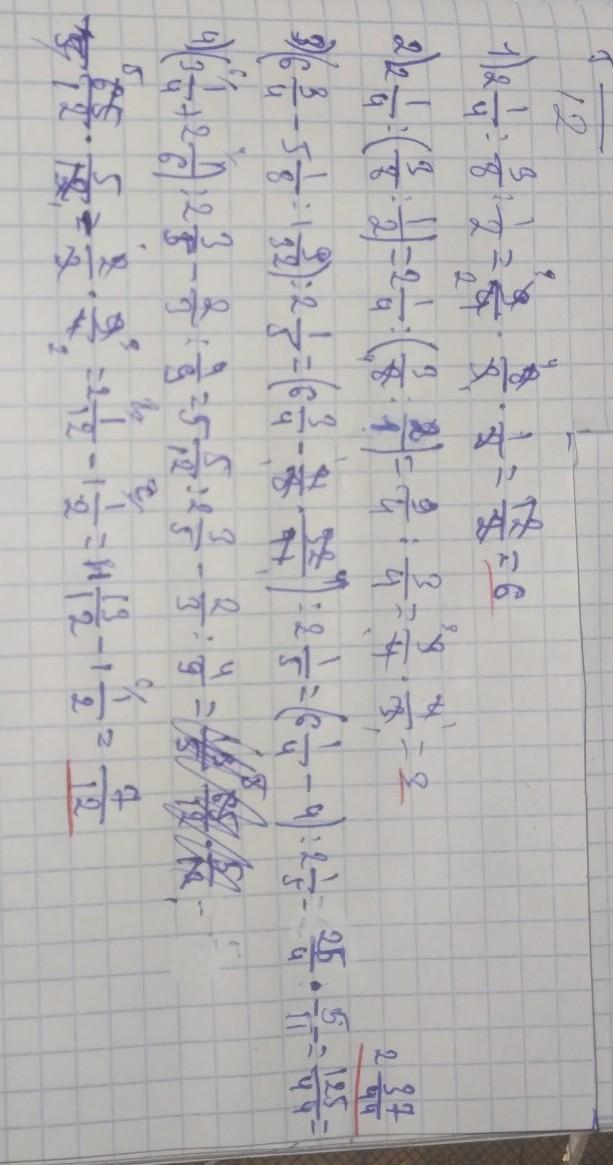 12
1) 2 1/4 : 3/8 : 1/2 = 9/4 · 8/3 · 1/2 = 12/2 = 6
2) 2 1/4 : (3/8 : 1/2) = 2 1/4 : (3/8 · 2/1) = 9/4 : 3/4 = 9/4 · 4/3 = 3
3) (6 3/4 - 5 1/8 : 1 9/32) : 2 1/5 = (6 3/4 - 41/8 · 32/41) : 2 1/5 = (6 1/4 - 4) : 2 1/5 = 25/4 · 5/11 = 125/44 =
2 37/44
4) (3 1/4 + 2 1/6) : 2 3/5 - 2/3 : 4/9 = 5 5/12 : 2 3/5 - 2/3 : 4/9 =
65/12 · 5/13 - 2/3 · 9/4 = 2 1/12 - 1 1/2 = 1 13/12 - 1 1/2 = 7/12